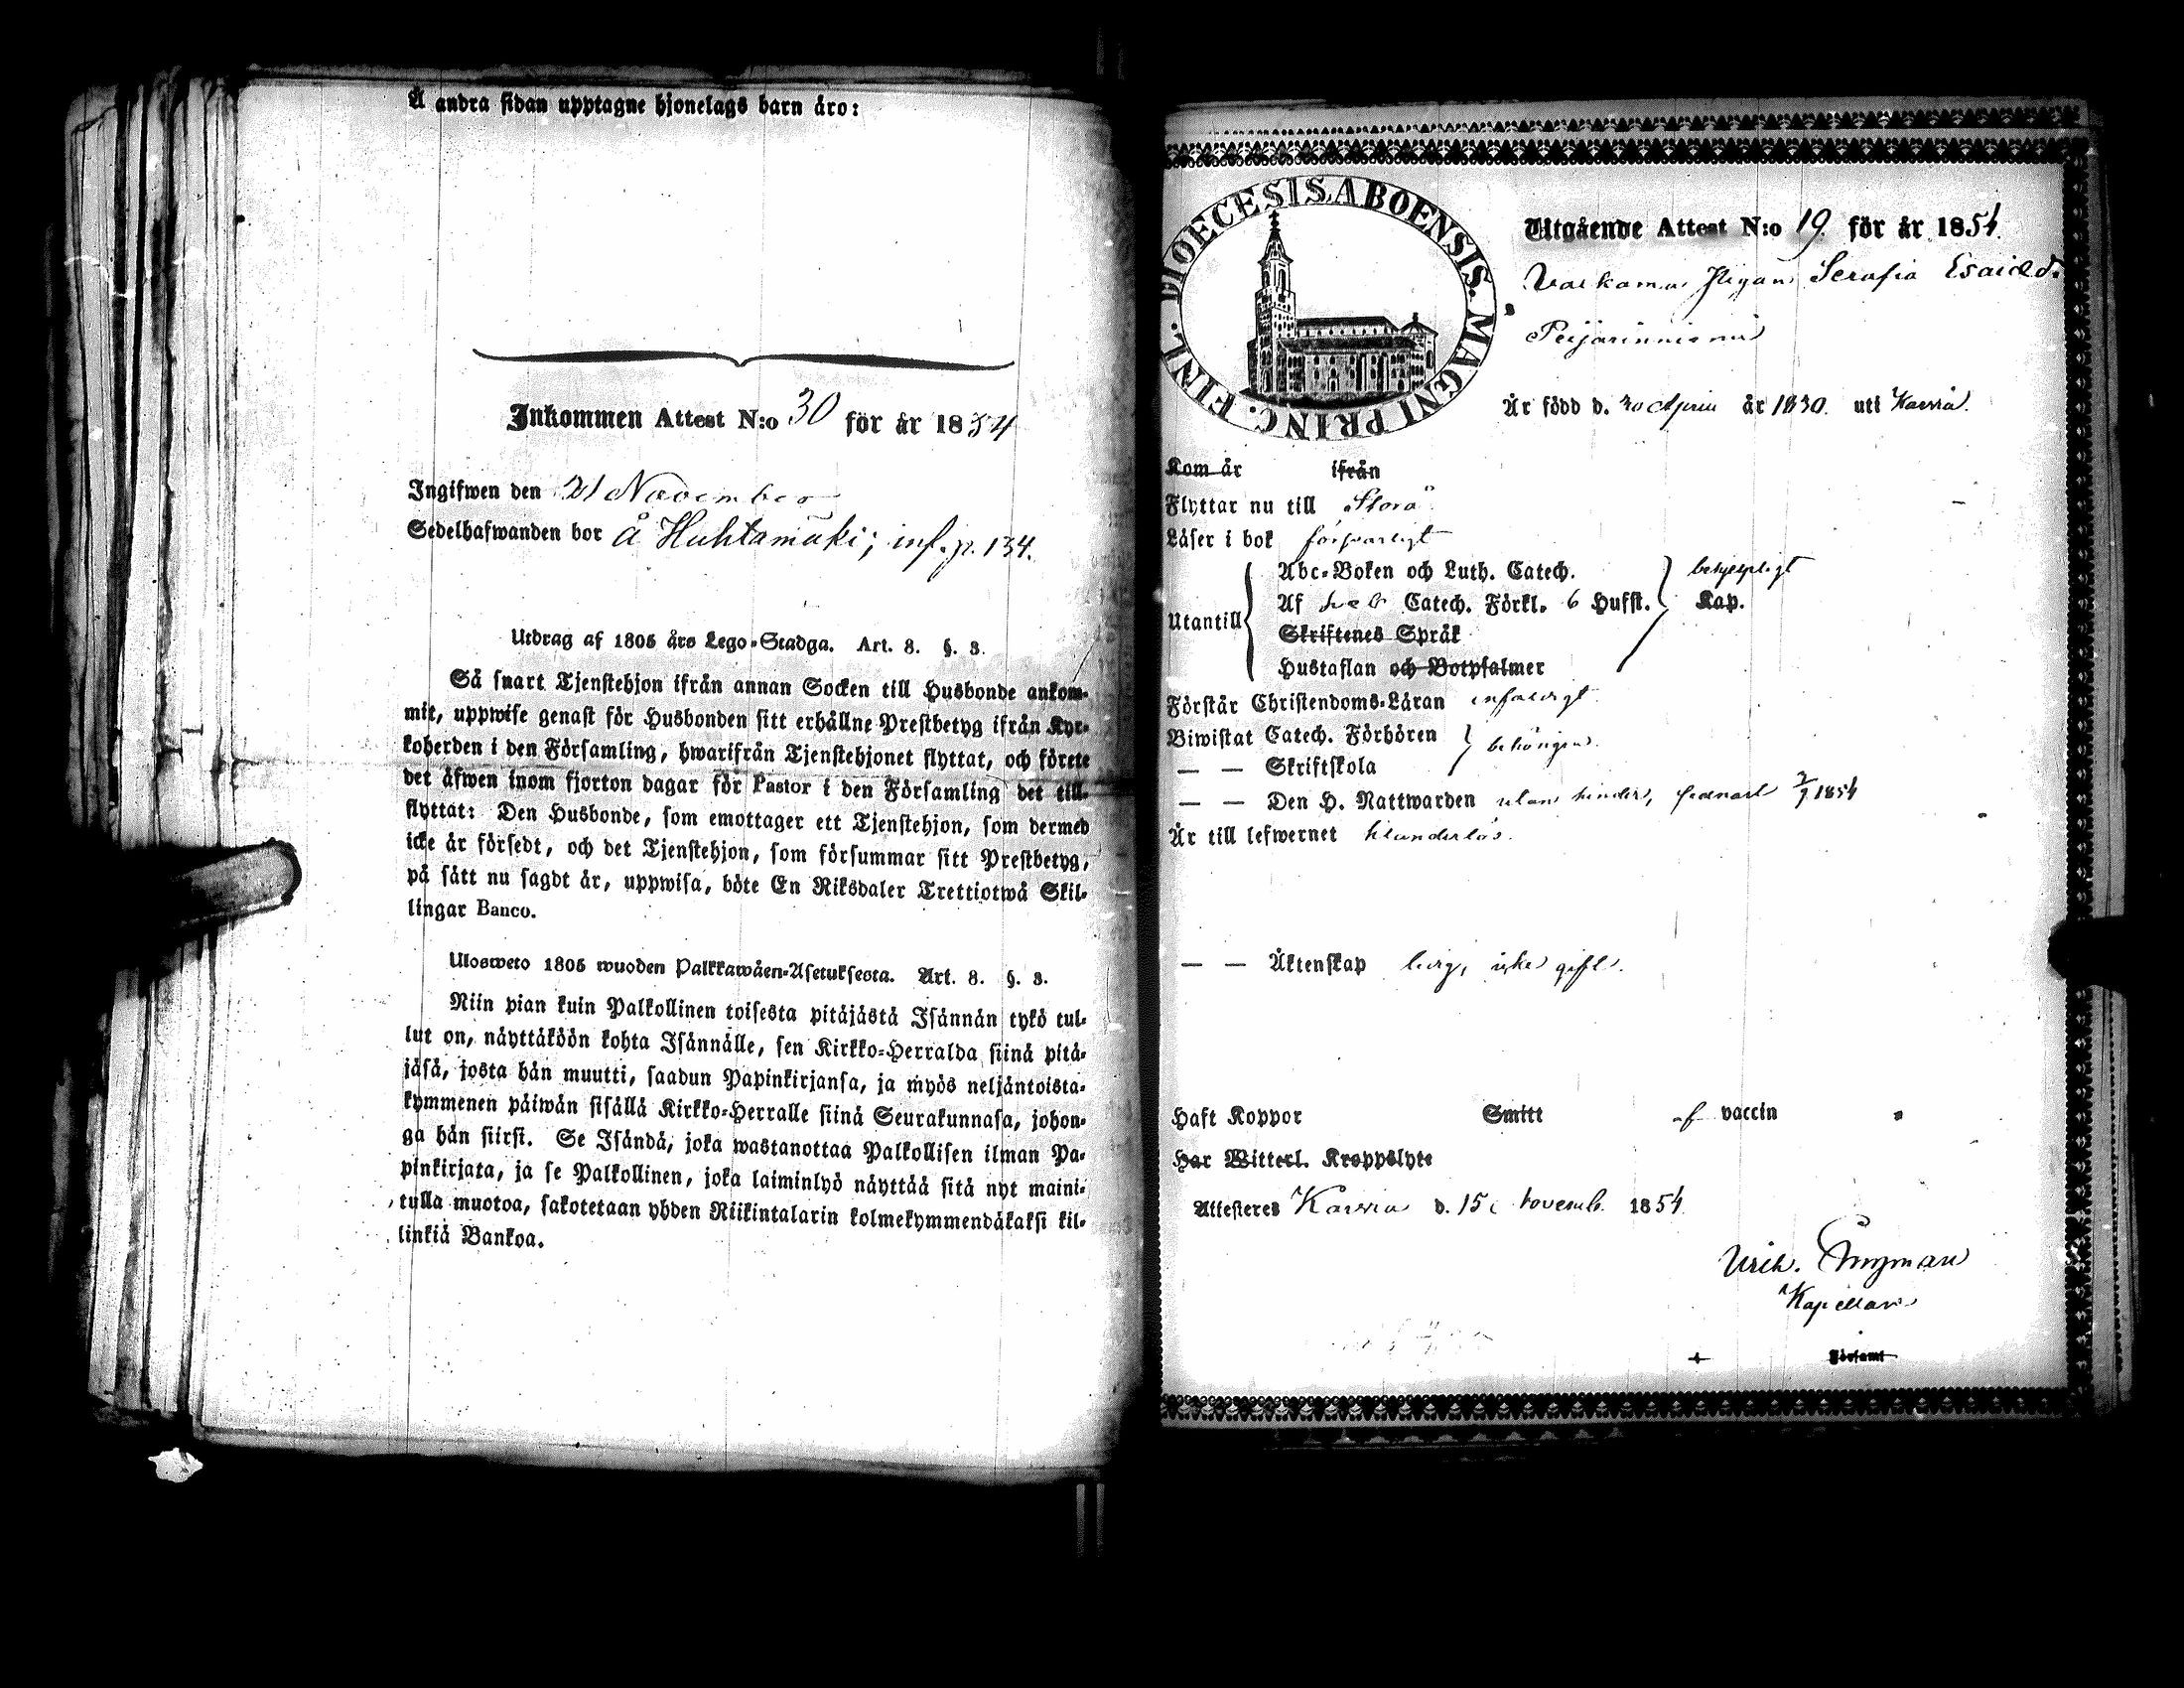 Å andra sidan upptagne hjonelags barn äro:
Inkommen Attest N:o 30 för år 1854
Ingifwen den 21 November
Sedelhafwanden bor å Huhtamäki; inf. p. 134.
Utdrag af 1805 års Lego-Stadga. Art. 8. §. 3.
Så snart Tjenstehjon ifrån annan Socken till Husbonde ankom-
mit, uppwise genast för Husbonden sitt erhållne Prestbetyg ifrån Kyr-
koherden i den Församling, hwarifrån Tjenstehjonet flyttat, och förete
det äfwen inom fjorton dagar för Pastor i den Församling det till-
flyttat: Den Husbonde, som emottager ett Tjenstehjon, som dermed
icke är försedt, och det Tjenstehjon, som försummar sitt Prestbetyg,
på sätt nu sagdt är, uppwisa, böte En Riksdaler Trettiotwå Skil-
lingar Banco.
Ulosweto 1805 wuoden Palkkawäen-Asetuksesta. Art. 8. §. 3.
Niin pian kuin Palkollinen toisesta pitäjästä Isännän tykö tul-
lut on, näyttäköön kohta Isännälle, sen Kirkko-Herralda siinä pitä-
jäsä, josta hän muutti, saadun Papinkirjansa, ja myös neljäntoista-
kymmenen päiwän sisällä Kirkko-Herralle siinä Seurakunnasa, johon-
ga hän siirsi. Se Isändä, joka wastanottaa Palkollisen ilman Pa-
pinkirjata, ja se Palkollinen, joka laiminlyö näyttää sitä nyt maini-
tulla muotoa, sakotetaan yhden Riikintalarin kolmekymmendäkaksi kil-
linkiä Bankoa.
DIOECESIS ABOENSIS. MAGNI PRINC. FINL.
Utgående Attest N:o 19 för år 1854.
Pigan Serafia Esaied:r
Är född d. 30 April år 1830. uti Karvia.
Kom år ifrån
Flyttar nu till Storå
Läser i bok försvarligt
Utantill
Abc-Boken och Luth. Catech. behjelpligt
Af Catech. Förkl. 6 Hufst. Kap.
Skriftenes Språk
Hustaflan och Botpsalmer
Förstår Christendoms-Läran enfaldigt
Biwistat Catech. Förhören behörigen.
— — Skriftskola
— — Den H. Nattwarden utan hinder, senast 2/7 1854
Är till lefwernet klanderlös.
— — Äktenskap ledig, icke gift.
Haft Koppor Smitt af vaccin
Har Witterl. Kroppslyte
Attesteres Karvia d. 15 Novemb. 1854.
Kapellan
Församl